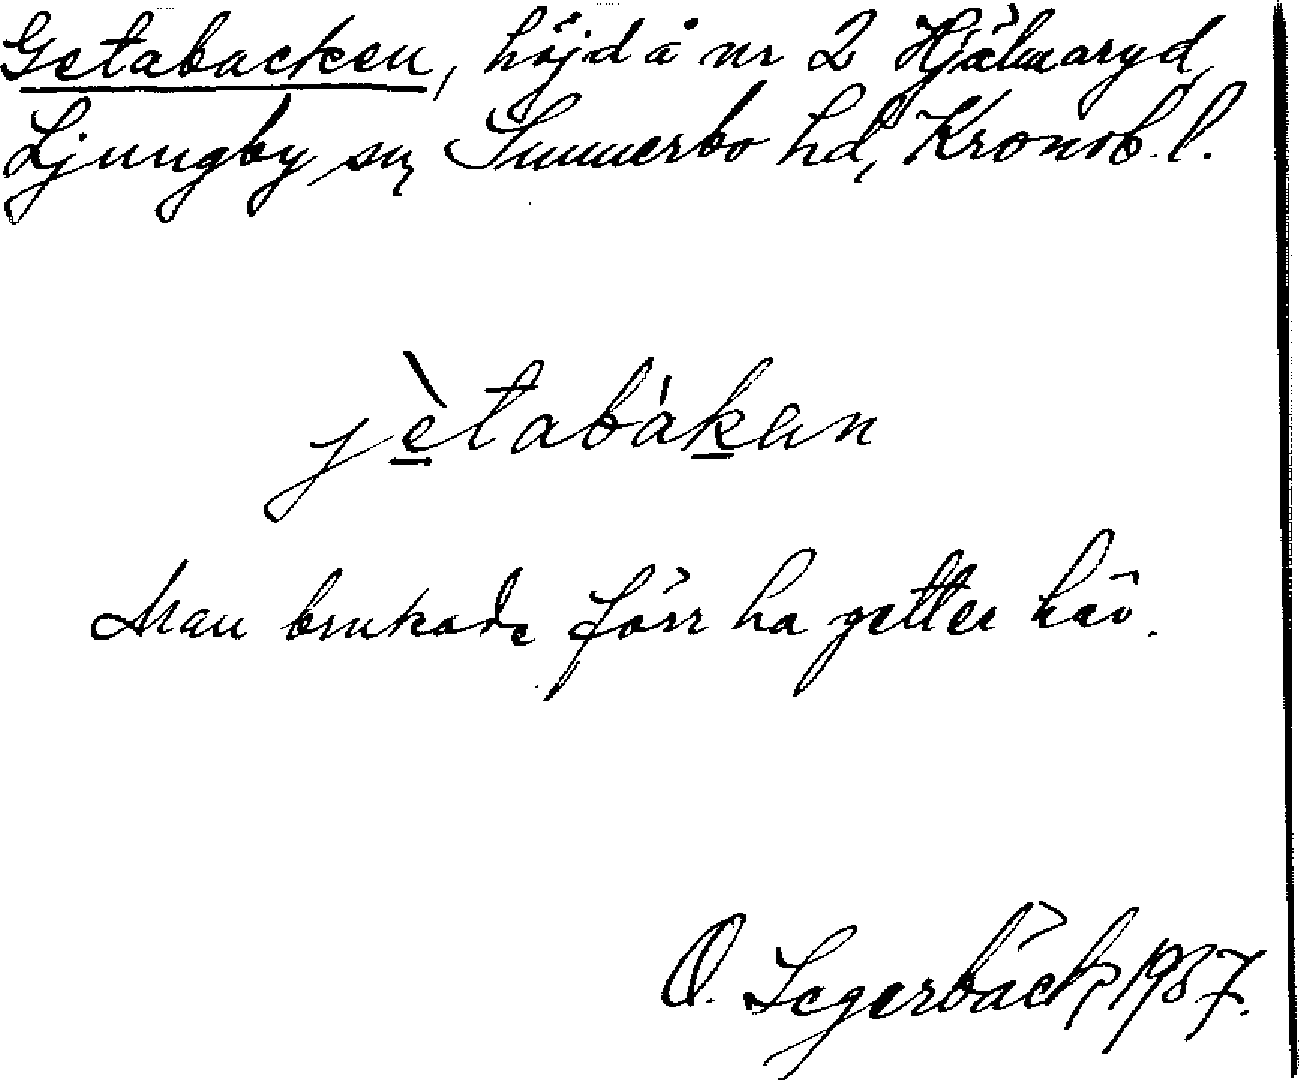 Getabacken, höjd å nr 2 Hjälmaryd,
Ljungby sn, Sunnerbo hd, Kronob. l.
jètabákan
Man brukade förr ha getter här.
O. Segerbäck, 1937.